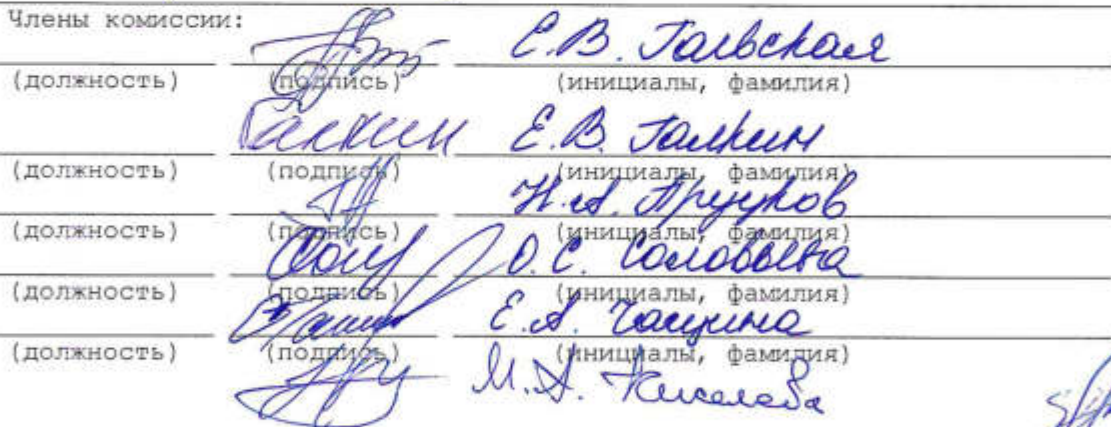 Члены комиссии:
Е.В. Гаевская
(должность) (подпись) (инициалы, фамилия)
Галкин Е.В. Галкин
(должность) (подпись) (инициалы, фамилия)
Н.А.
(должность) (подпись) (инициалы, фамилия)
О.С. Соловьева
(должность) (подпись) (инициалы, фамилия)
Е.А. Чащина
(должность) (подпись) (инициалы, фамилия)
М.А. Киселева